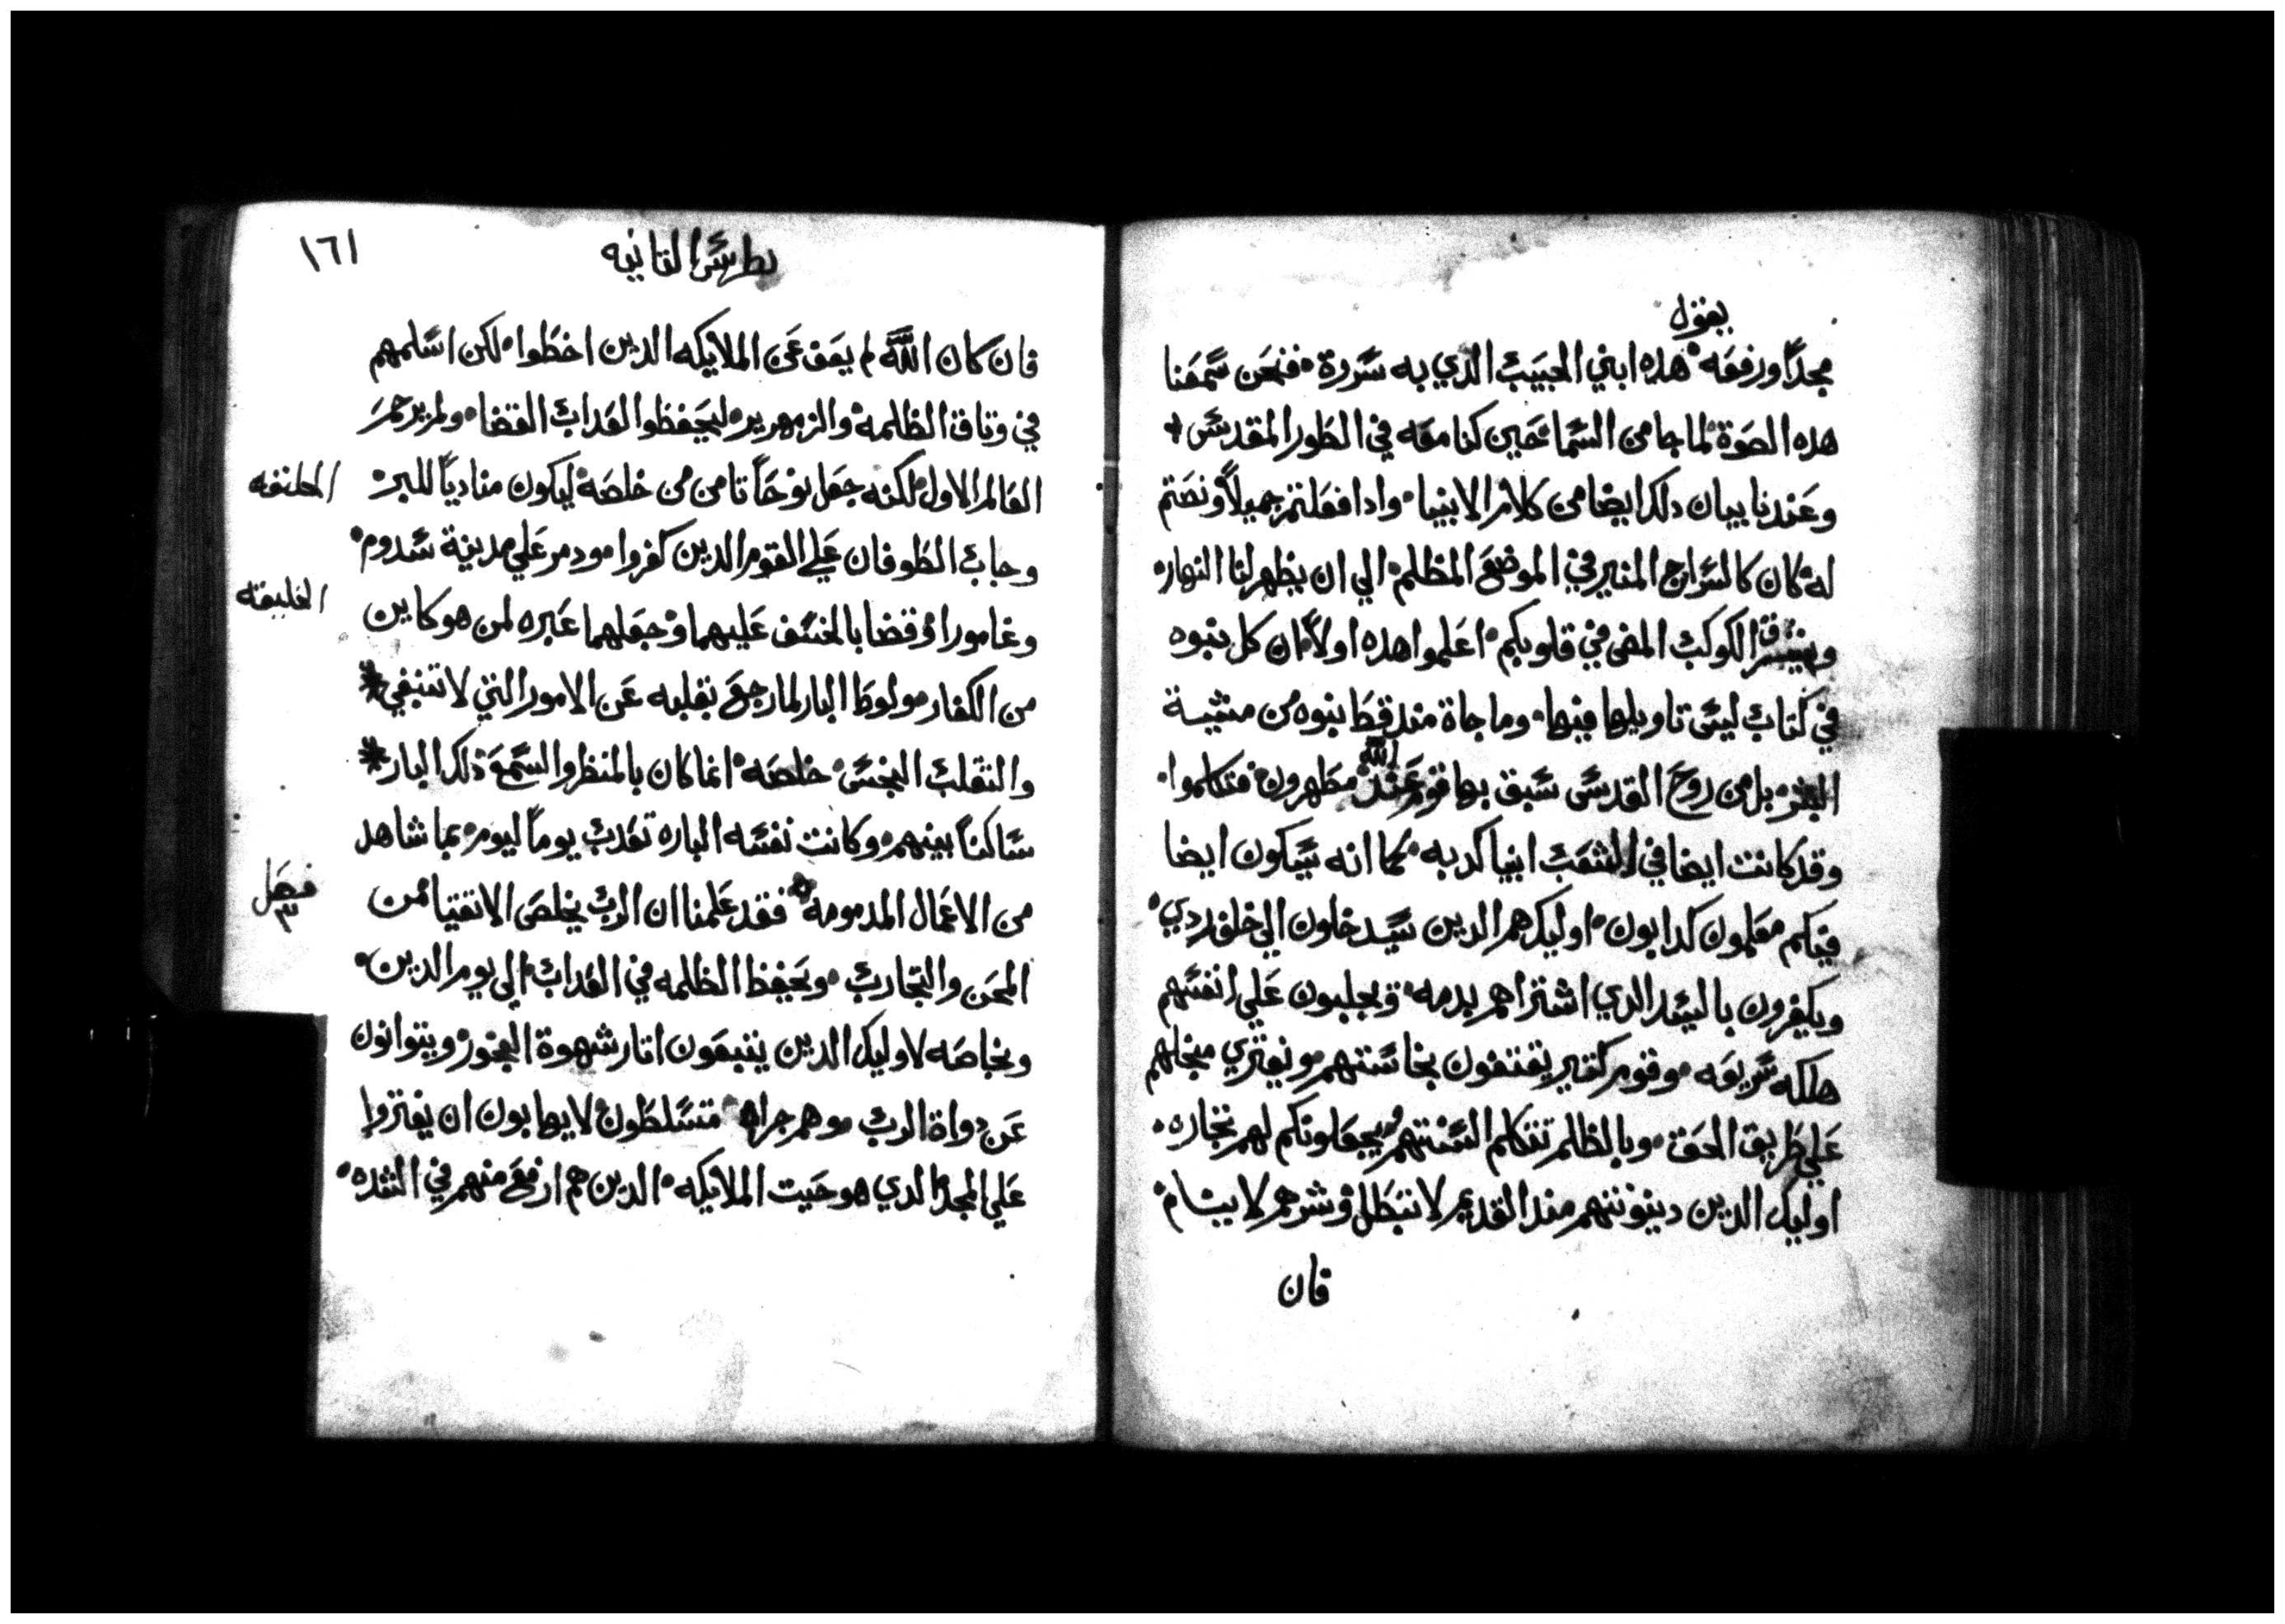 يقول
مجداً ورفعه هذه ابني الحبيب الدي به سررة فنحن سمعنا
هده الصوة لما جا من السما حين كنا معه في الطور المقدس
وعندنا بيان دلك ايضا من كلام الانبيا وادا فعلتم جميلاً ونصتم
له كان كالسراج المنير في الموضع المظلم الي ان يظهر لنا النهار
الكوكب المضى في قلوبكم اعلموا هده اولاً ان كل نبوه
في كتاب ليس تاويلها فيها وما جاة مند قط نبوه من مشية
البشر بل من روح القدس سبق بها قوم عند الله مطهرون فتكلموا
وقد كانت ايضا في الشعب انبيا كدبه كما انه سيكون ايضا
فيكم معلمون كدابون اوليك هم الدين سيدخلون الي خلف ردي
ويكفرون بالسيد الدي اشتراهم بدمه ويجلبون علي انفسهم
هلكه سريعه وقوم كتير يقتفون نجاستهم ويفتري منجلهم
علي طريق الحق وبالظلم تتكلم السنتهم ويجعلونكم لهم تجاره
اوليك الدين دينونتهم مند القديم لا تبطل وشرهم لا ينام
فان
بطرس التانيه
١٦١
فان كان الله لم يعف عن الملايكه الدين اخطوا لكن اسلمهم
في وتاق الظلمه والزمهرير ليحفظوا لعداب القضا ولم يرحم
العالم الاول لكنه جعل نوحاً تامن من خلصه ليكون منادياً للبر
وجاب الطوفان علي القوم الدين كفروا ودمر علي مدينة سدوم
وغامورا وقضا بالخسف عليهما وجعلهما عبره لمن هو كاين
من الكفار ولوط البار لما رجع بقلبه عن الامور التي لا تنبغي
والتقلب النجس خلصه انما كان بالمنظر والسمع دلك البار
ساكناً بينهم وكانت نفسه الباره تعدب يوماً ليوم بما شاهد
من الاعمال المدمومه فقد علمنا ان الرب يخلص الاتقيا من
المحن والتجارب ويحفظ الظلمه في العداب الى يوم الدين
وبخاصه لاوليك الدين يتبعون اتار شهوة الفجور ويتوانون
عن دواة الرب وهم جراه متسلطون لا يهابون ان يفتروا
علي المجد الدي هو حيت الملايكه الدين هم ارفع منهم في الشده
الخليقه
فصل
٣